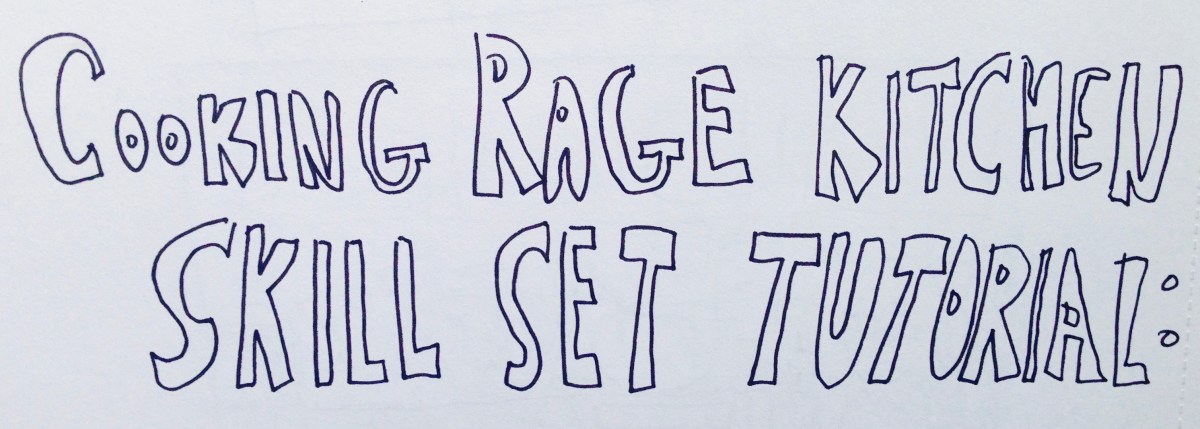 COOKING RAGE KITCHEN
SKILL SET TUTORIAL: